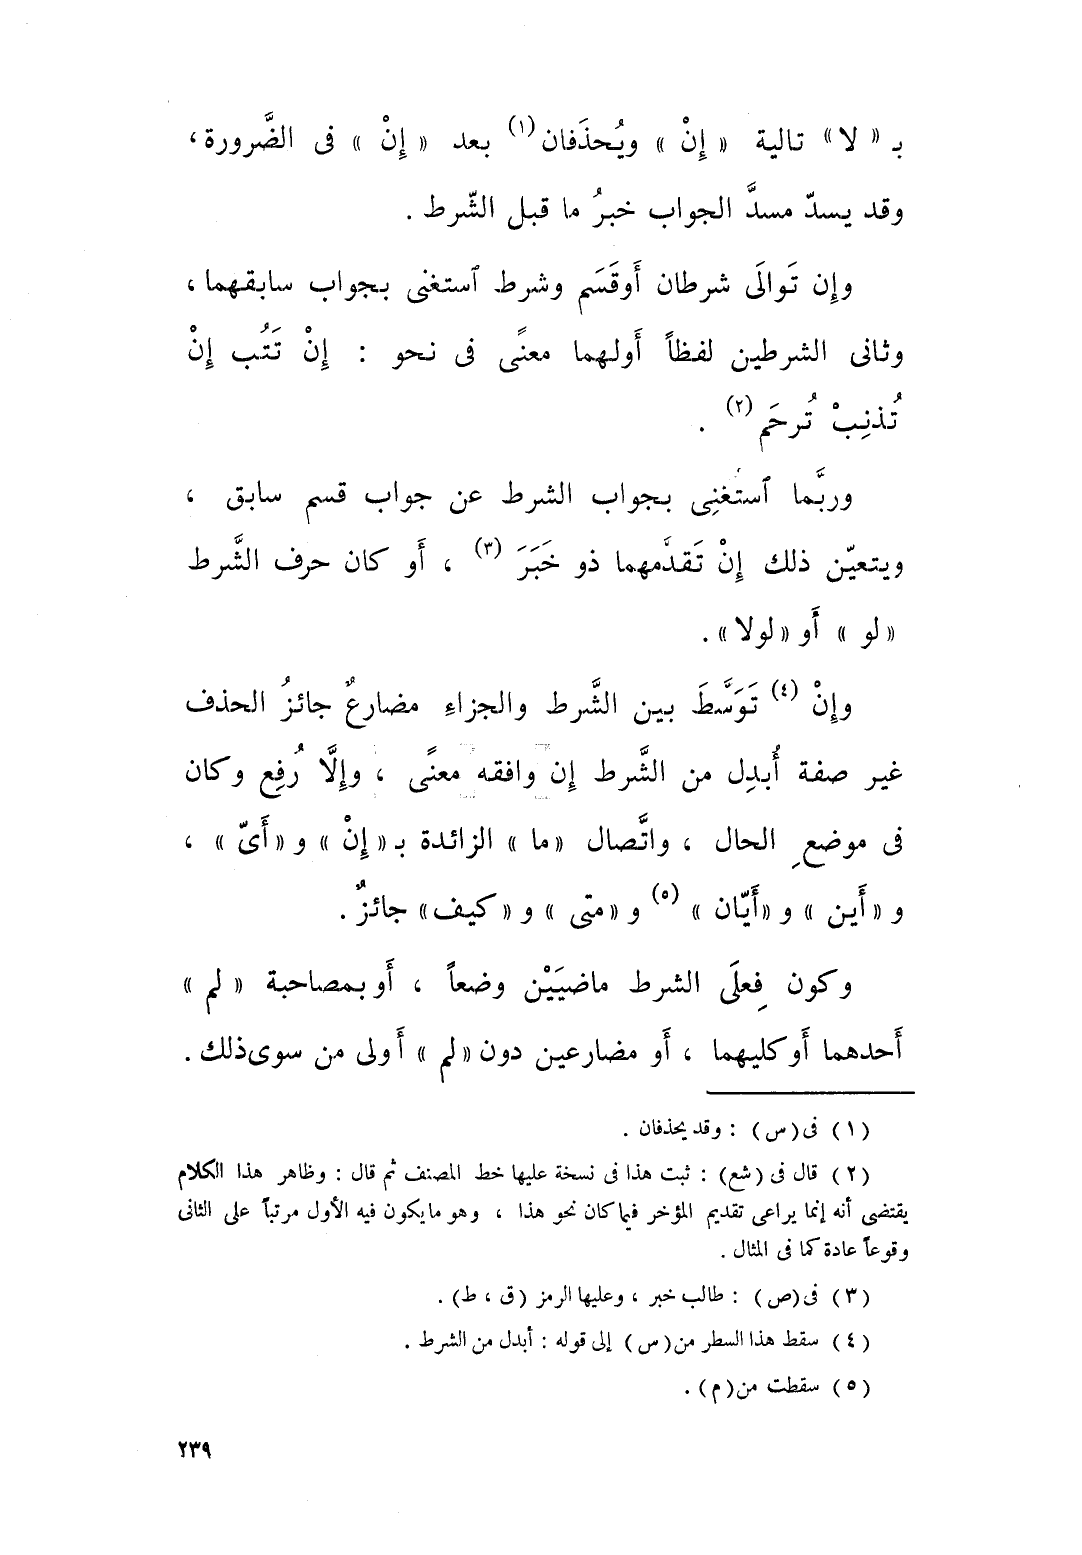 بـ « لا » تالية « إِنْ » ويُحذَفان (١) بعد « إِنْ » فى الضَّرورة ،
وقد يسدّ مسدَّ الجواب خبرُ ما قبل الشّرط .
وإن تَوالَى شرطان أَوقَسَم وشرط ٱستغنى بجواب سابقهما ،
وثانى الشرطين لفظاً أَولهما معنًى فى نحو : إِنْ تَتُب إِنْ
تُذنِبْ تُرحَم (٢) .
وربَّما ٱستُغنِى بجواب الشرط عن جواب قسم سابق ،
ويتعيّن ذلك إِنْ تَقدّمهما ذو خَبَرَ (٣) ، أَو كان حرف الشَّرط
« لو » أَو « لولا » .
وإِنْ (٤) تَوَسَّطَ بين الشَّرط والجزاءِ مضارعٌ جائزُ الحذف
غير صفة أُبدِل من الشَّرط إِن وافقه معنًى ، وإِلَّا رُفِع وكان
فى موضعِ الحال ، واتَّصال « ما » الزائدة بـ « إِنْ » و « أَىّ » ،
و « أَين » و « أَيّان » (٥) و « متى » و « كيف » جائزٌ .
وكون فِعلَى الشرط ماضيَيْن وضعاً ، أَو بمصاحبة « لم »
أَحدهما أَوكليهما ، أَو مضارعين دون « لم » أَولى من سوى ذلك .
(١) فى (س) : وقد يحذفان .
(٢) قال فى (شع) : ثبت هذا فى نسخة عليها خط المصنف ثم قال : وظاهر هذا الكلام
يقتضى أنه إنما يراعى تقديم المؤخر فيما كان نحو هذا ، وهو مايكون فيه الأول مرتباً على الثانى
وقوعاً عادة كما فى المثال .
(٣) فى (ص) : طالب خبر ، وعليها الرمز (ق ، ط) .
(٤) سقط هذا السطر من (س) إلى قوله : أبدل من الشرط .
(٥) سقطت من (م) .
٢٣٩